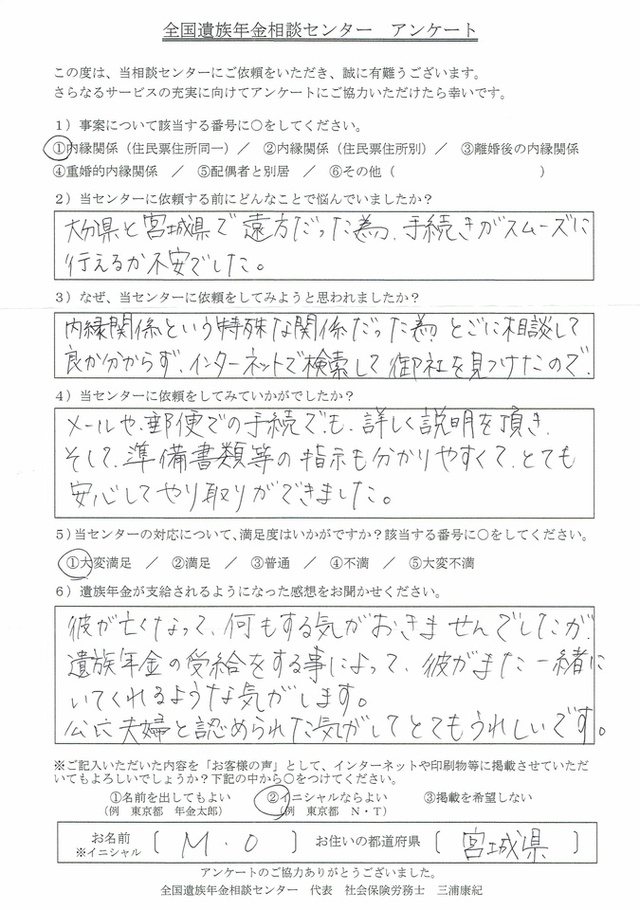 全国遺族年金相談センター　アンケート
この度は、当相談センターにご依頼をいただき、誠に有難うございます。
さらなるサービスの充実に向けてアンケートにご協力いただけたら幸いです。
１）事案について該当する番号に○をしてください。
①内縁関係（住民票住所同一）／　②内縁関係（住民票住所別）／　③離婚後の内縁関係
④重婚的内縁関係　／　⑤配偶者と別居　／　⑥その他（　　　　　　　　）
２）当センターに依頼する前にどんなことで悩んでいましたか？
大分県と宮城県で遠方だった為、手続きがスムーズに
行えるか不安でした。
３）なぜ、当センターに依頼をしてみようと思われましたか？
内縁関係という特殊な関係だった為 どこに相談して
良か分からず、インターネットで検索して御社を見つけたので。
４）当センターに依頼をしてみていかがでしたか？
メールや、郵便での手続でも、詳しく説明を頂き、
そして、準備書類等の指示も分かりやすくて、とても
安心してやり取りができました。
５）当センターの対応について、満足度はいかがですか？該当する番号に○をしてください。
①大変満足　／　②満足　／　③普通　／　④不満　／　⑤大変不満
６）遺族年金が支給されるようになった感想をお聞かせください。
彼が亡くなって、何もする気がおきませんでしたが、
遺族年金の受給をする事によって、彼がまた一緒に
いてくれるような気がします。
公に夫婦と認められた気がしてとてもうれしいです。
※ご記入いただいた内容を「お客様の声」として、インターネットや印刷物等に掲載させていただ
いてもよろしいでしょうか？下記の中から○をつけてください。
①名前を出してもよい　②イニシャルならよい　③掲載を希望しない
（例　東京都　年金太郎）　（例　東京都　Ｎ・Ｔ）
お名前　※イニシャル　〔 M . O 〕　お住いの都道府県　〔 宮城県 〕
アンケートのご協力ありがとうございました。
全国遺族年金相談センター　代表　社会保険労務士　三浦康紀